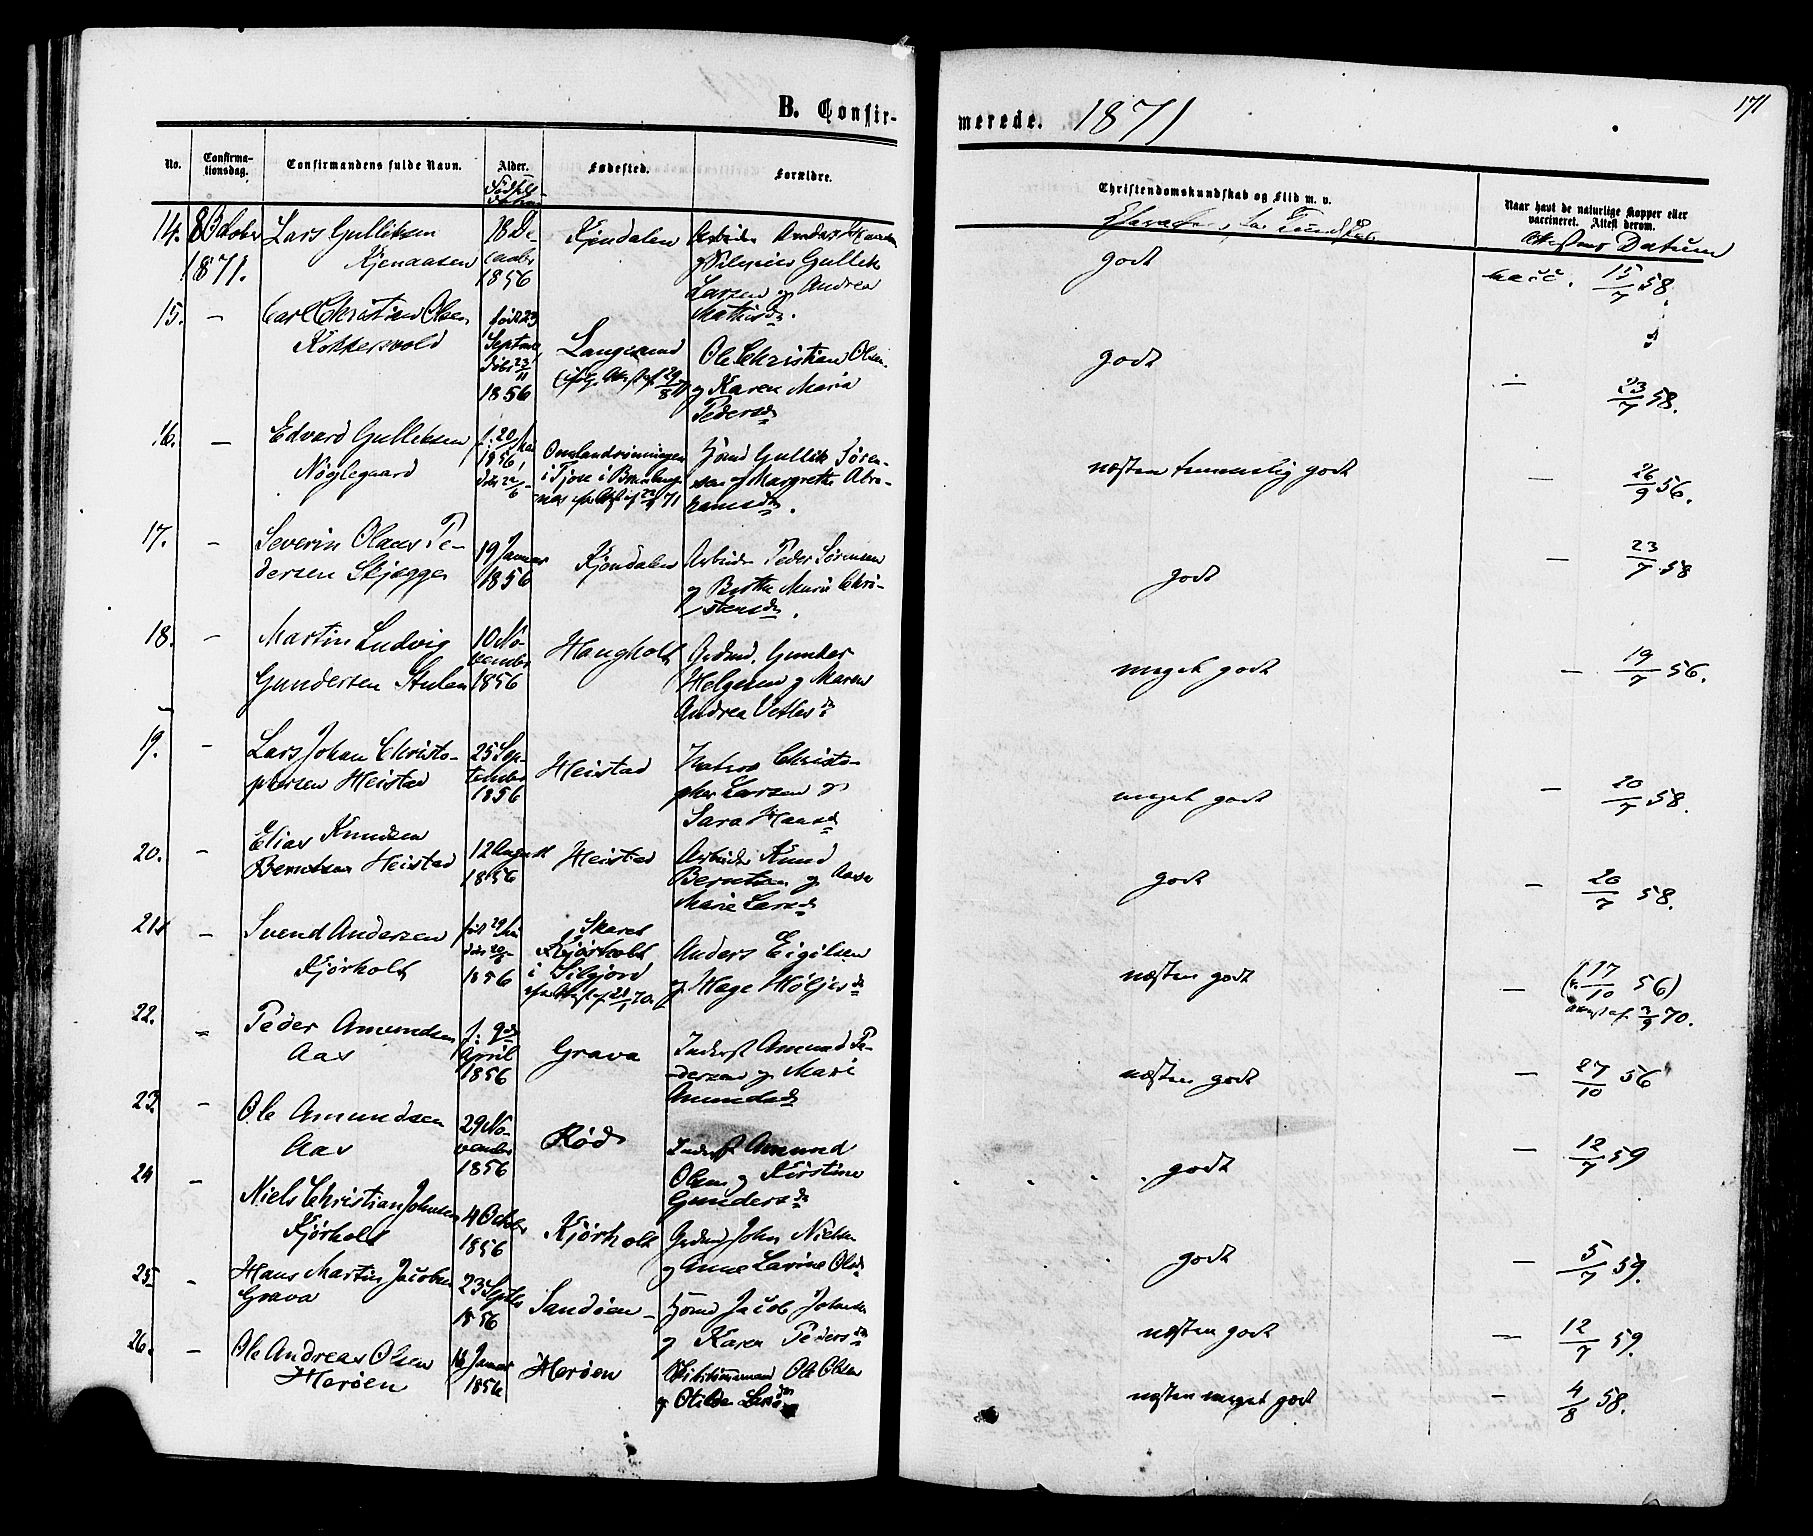 B. Confir-
merede. 1871
171
No.
Confirma-
tionsdag.
Confirmandens fulde Navn.
Alder.
Fødested.
Forældre.
Christendomskundskab og Flid m. v.
Naar havt de naturlige Kopper eller
vaccineret. Attest derom.
Datum
14. 8 October
1871.
Lars Gulliksen
18 De-
1856
Arbeider
Gullik
Larsen og Andrea
godt
vacc. 15/7 58.
15. –
Carl Christian Olsen
født 23
Septemb
døbt 23/11
1856
Langesund
Ole Christian Olsen
og Karen Maria
Pedersd
godt
– 23/7 58.
16. –
Edvard Gulliksen
Nøglegaard
f. 20/
1856,
Gullik Søren-
sen og Margrethe Abra-
hamsd.
næsten temmelig godt
– 26/9 56.
17. –
Severin Olaus Pe-
dersen Skjegge
19 Januar
1856
Arbeider Peder Sørensen
og Berthe Marie Chri-
stensd.
godt
– 23/7 58
18. –
Martin Ludvig
Gundersen Stulen
10 No-
vember
1856
Haugholt
Grdmd. Gunder
Helgesen og Maren
Andrea Vetlesd
meget godt
– 19/7 56.
19. –
Lars Johan Christo-
phersen Heistad
25 Sep-
tember
1856
Heistad
Matros Christo-
pher Larsen og
Sara Hansd
meget godt
– 20/7 58.
20. –
Elias Knudsen
Berntsen Heistad
12 August
1856
Heistad
Arbeider Knud
Berntsen og
Marie Larsd
godt
– 20/7 58.
21. –
Svend Andersen
Kjørholt
1856
Skaret
Kjørholt
i Silgjord
Anders Eigilsen
og Hæge Høljesd
næsten godt
– 17/10 56)
70.
22. –
Peder Amundsen
Aas
f. 9de
April
1856
Grava
Inderst Amund Pe-
dersen og Mari
Amundsd
næsten godt
– 27/10 56
23. –
Ole Amundsen
Aas
29 No-
vember
1856
Rød
Inderst Amund
Olsen og Kirstine
Gundersd
godt
– 12/7 59
24 –
Niels Christian Johnsen
Kjørholt
4 October
1856
Kjørholt
Grdmd John Nielsen
og Anne Lavine Olsd
godt
– 5/7 59.
25 –
Hans Martin Jacobsen
Grava
23 Septbr
1856
Sandøen –
Jacob Johnsen
og Karen Pedersd
næsten godt
– 12/7 59.
26. –
Ole Andreas Olsen
Herøen
Januar
1856
Herøen
Skibstømmermand Ole Olsen
og
næsten meget godt
– 4/8 58.